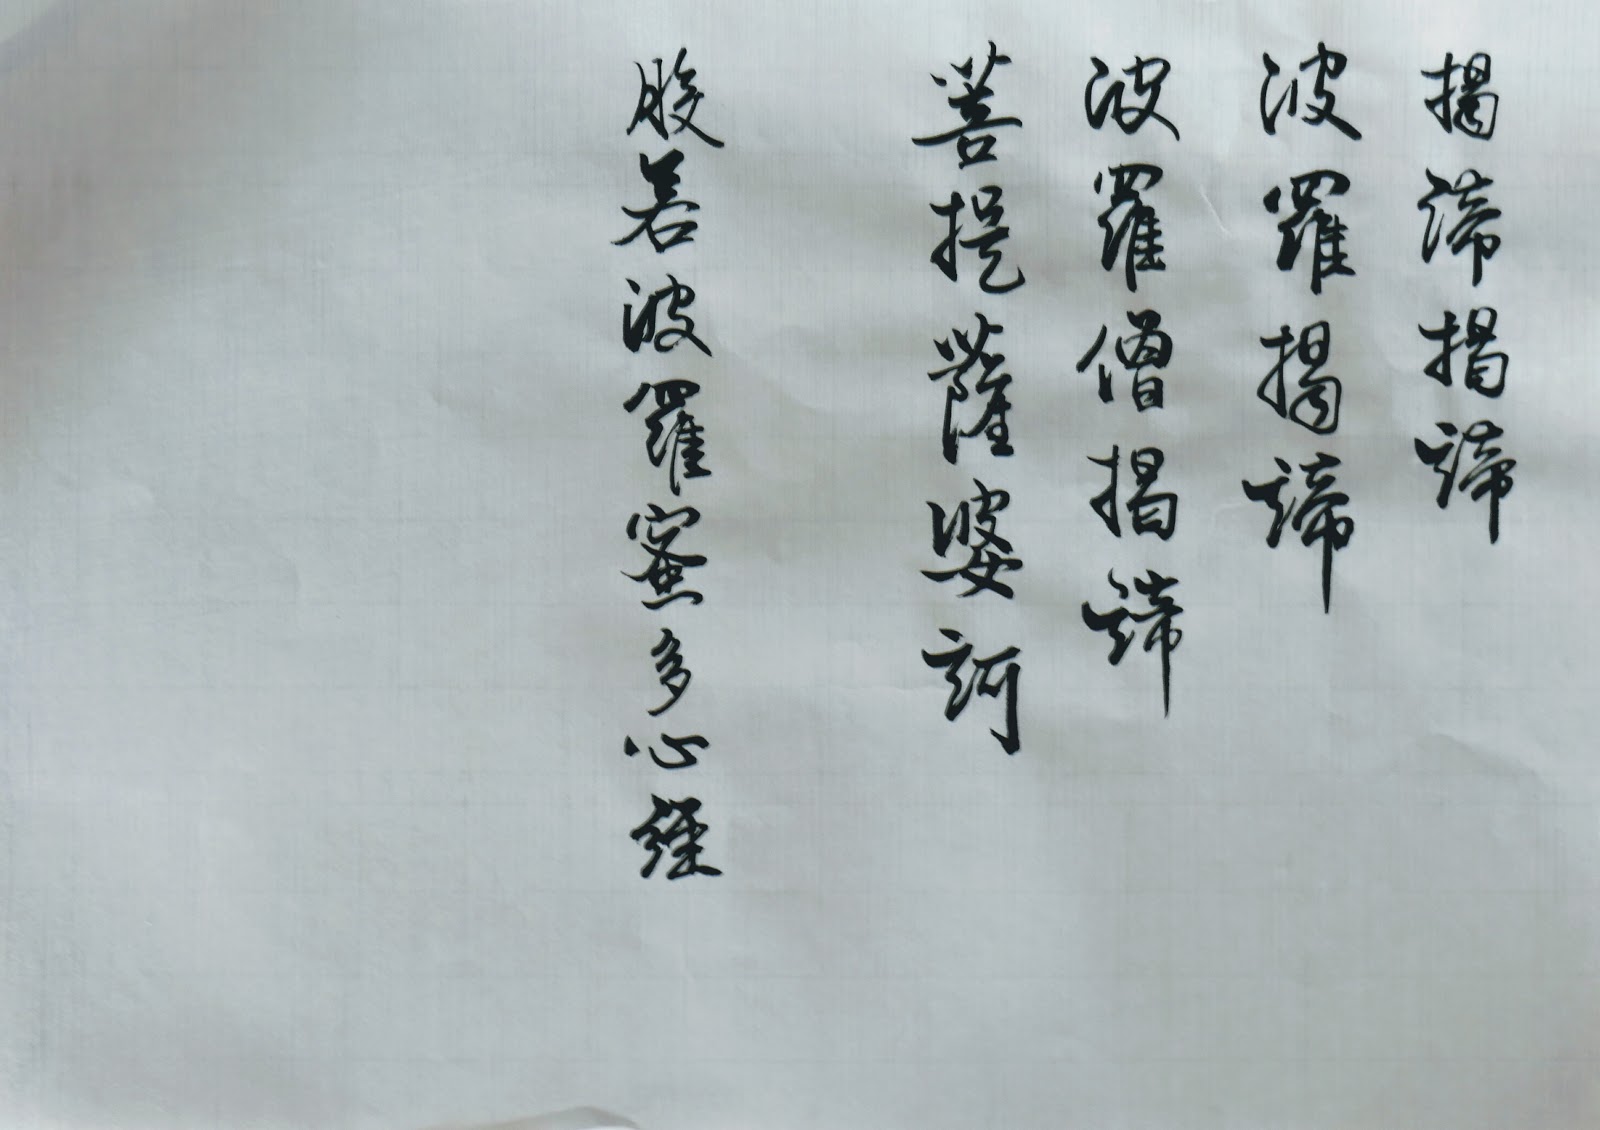 揭諦揭諦
波羅揭諦
波羅僧揭諦
菩提薩婆訶
般若波羅蜜多心經